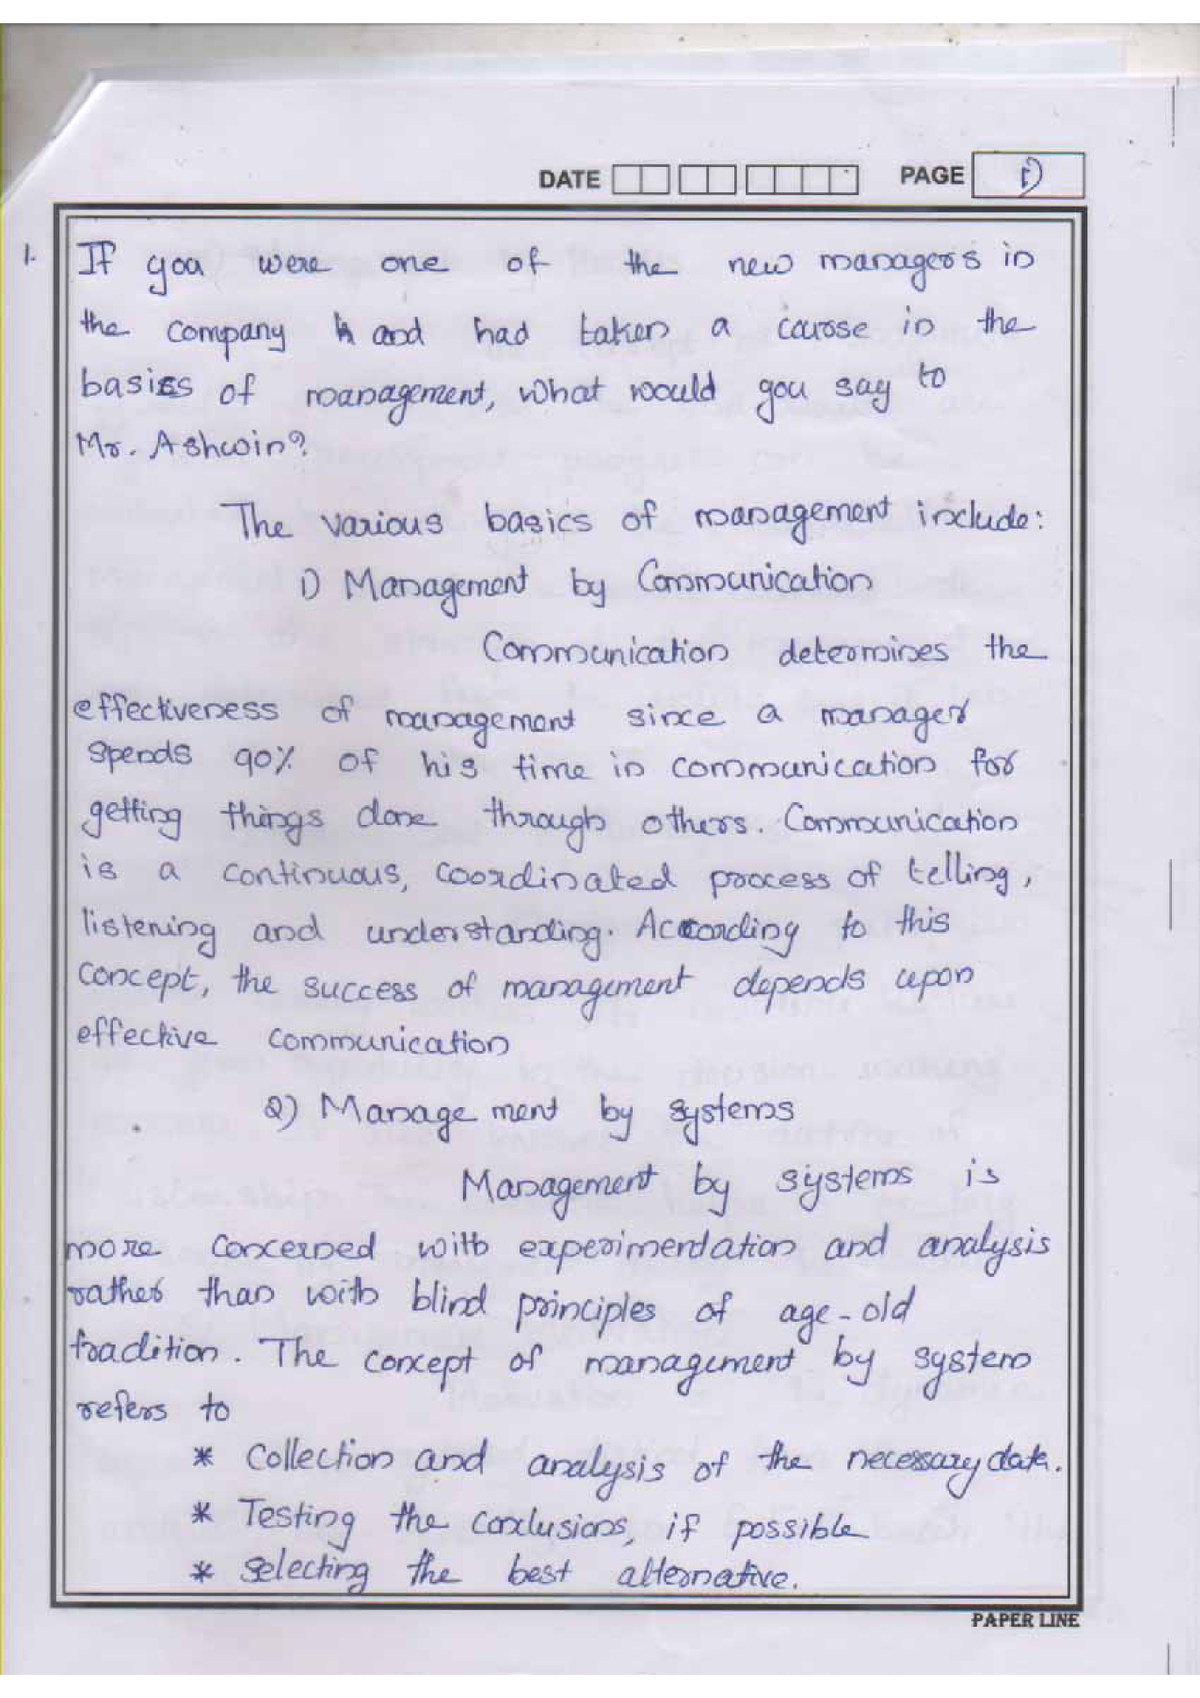 DATE PAGE 1)
1. If you were one of the new managers in
the company and had taken a course in the
basics of management, what would you say to
Mr. Ashwin?
The various basics of management include:
1) Management by Communication
Communication determines the
effectiveness of management since a manager
spends 90% of his time in communication for
getting things done through others. Communication
is a continuous, coordinated process of telling,
listening and understanding. According to this
concept, the success of management depends upon
effective communication
2) Management by systems
Management by systems is
more concerned with experimendation and analysis
rather than with blind principles of age-old
tradition. The concept of management by system
refers to
* Collection and analysis of the necessary data.
* Testing the conclusions, if possible
* Selecting the best alternative.
PAPER LINE